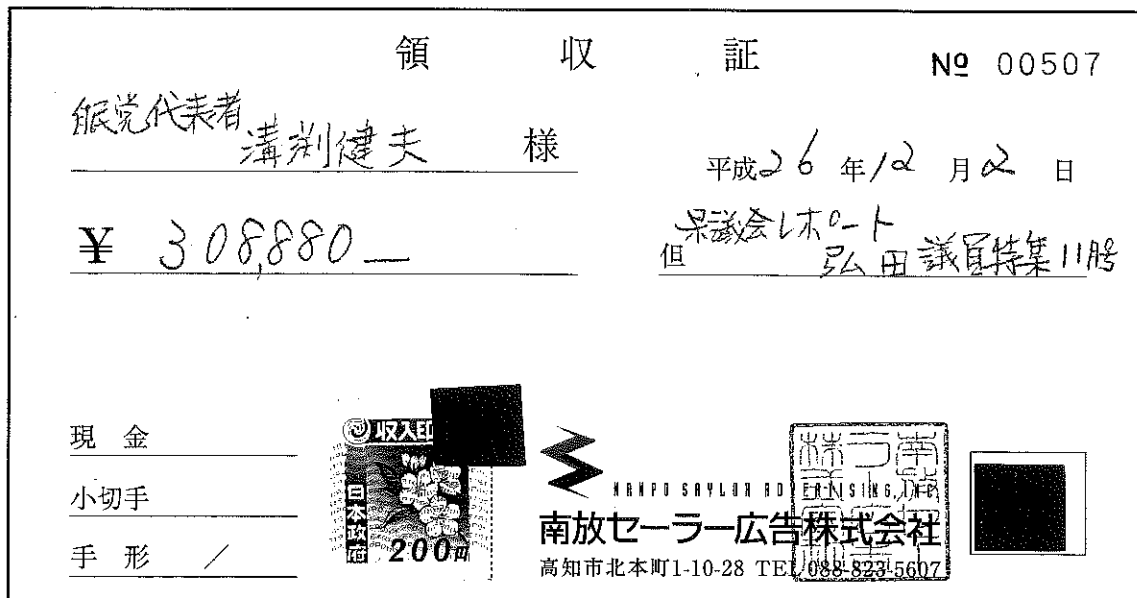 領収証
№ 00507
自民党代表者
溝渕健夫 様
平成26年12月2日
¥ 308,880—
県議会レポート
但 弘田議員特集11月号
現金
小切手
手形 /
収入印
日本政府
200円
NANPO SAYLOR ADVERTISING, INC.
南放セーラー広告株式会社
高知市北本町1-10-28 TEL 088-823-5607